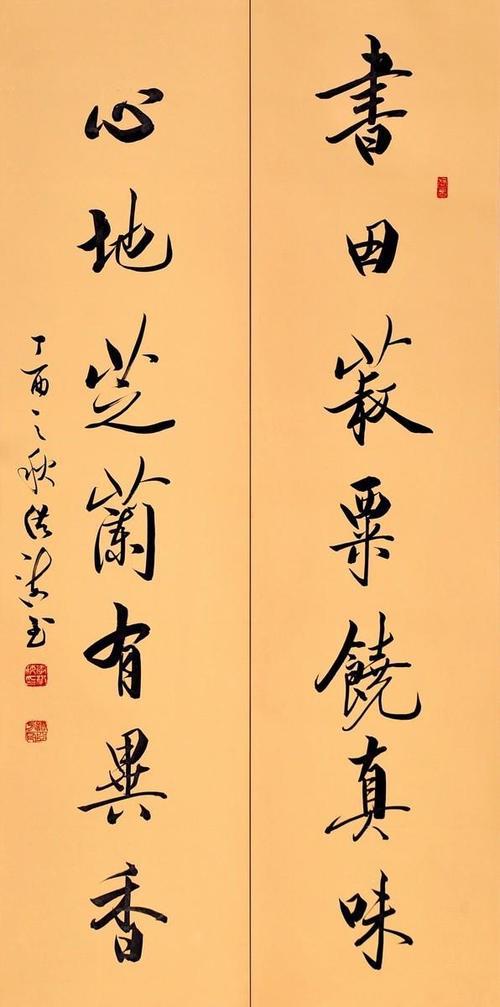 書田菽粟饒真味
心地芝蘭有異香
丁酉之秋